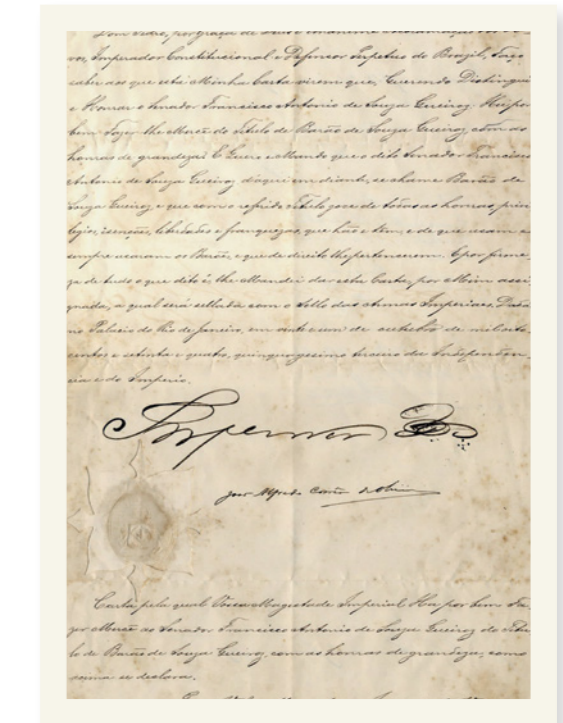 Dom Pedro, por graça de Deus e unanime acclamação dos
vos, Imperador Constitucional e Defensor Perpetuo do Brazil, Faço
saber aos que esta Minha Carta virem que, Querendo Distinguir
e Honrar o Senador Francisco Antonio de Souza Queiroz: Hei por
bem Fazer-lhe Mercê do Titulo de Barão de Souza Queiroz, com as
honras de grandeza; E Quero e Mando que o dito Senador Francisco
Antonio de Souza Queiroz d'aqui em diante, se chame Barão de
Souza Queiroz e que com o referido Titulo gose de todas as honras, privi
legios, isenções, liberdades e franquezas, que hão e tem, e de que usam e
sempre usaram os Barões, e que de direito lhe pertencerem. E por firme
za de tudo o que dito é, lhe Mandei dar esta Carta, por Mim assi
gnada, a qual será sellada com o Sello das Armas Imperiaes. Dada
no Palacio do Rio de Janeiro, em de de mil oito
centos e setenta e quatro, quinquagesimo terceiro da Independen
cia e do Imperio.
Imperador
José Alfredo Corrêa de Oliveira
Carta pela qual Vossa Magestade Imperial Ha por bem Fa
zer Mercê ao Senador Francisco Antonio de Souza Queiroz do Titu
lo de Barão de Souza Queiroz, com as honras de grandeza, como
acima se declara.